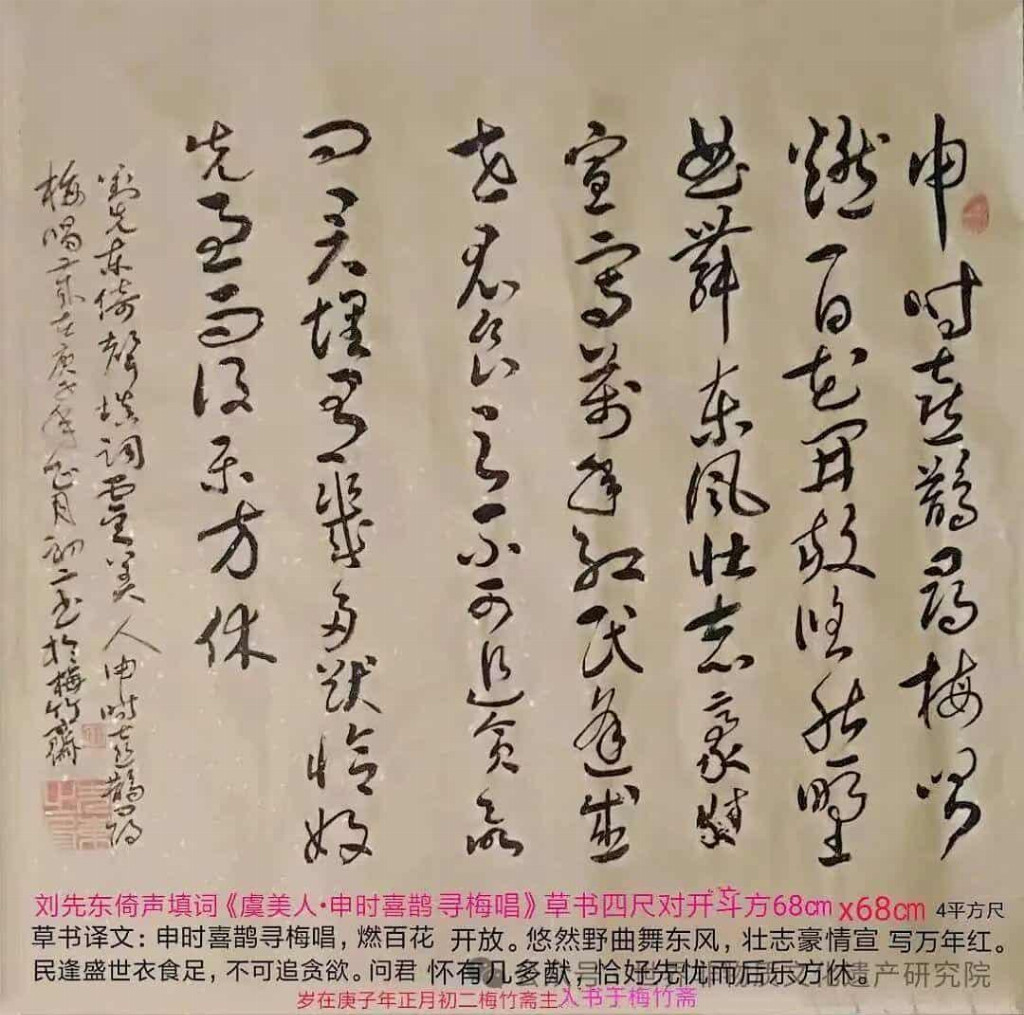 申时喜鹊寻梅唱
燃百花开放悠然野
曲舞东风壮志豪情
宣写万年红民逢盛
世衣食足不可追贪欲
问君怀有几多猷恰好
先忧而后乐方休
刘先东倚声填词虞美人申时喜鹊寻
梅唱岁在庚子年正月初二书于梅竹斋
刘先东倚声填词《虞美人·申时喜鹊 寻梅唱》草书四尺对开斗方68cm x68cm 4平方尺
草书译文：申时喜鹊寻梅唱，燃百花 开放。悠然野曲舞东风，壮志豪情宣 写万年红。
民逢盛世衣食足，不可追贪欲。问君 怀有几多猷，恰好先忧而后乐方休。
遗产研究院
岁在庚子年正月初二梅竹斋主人书于梅竹斋